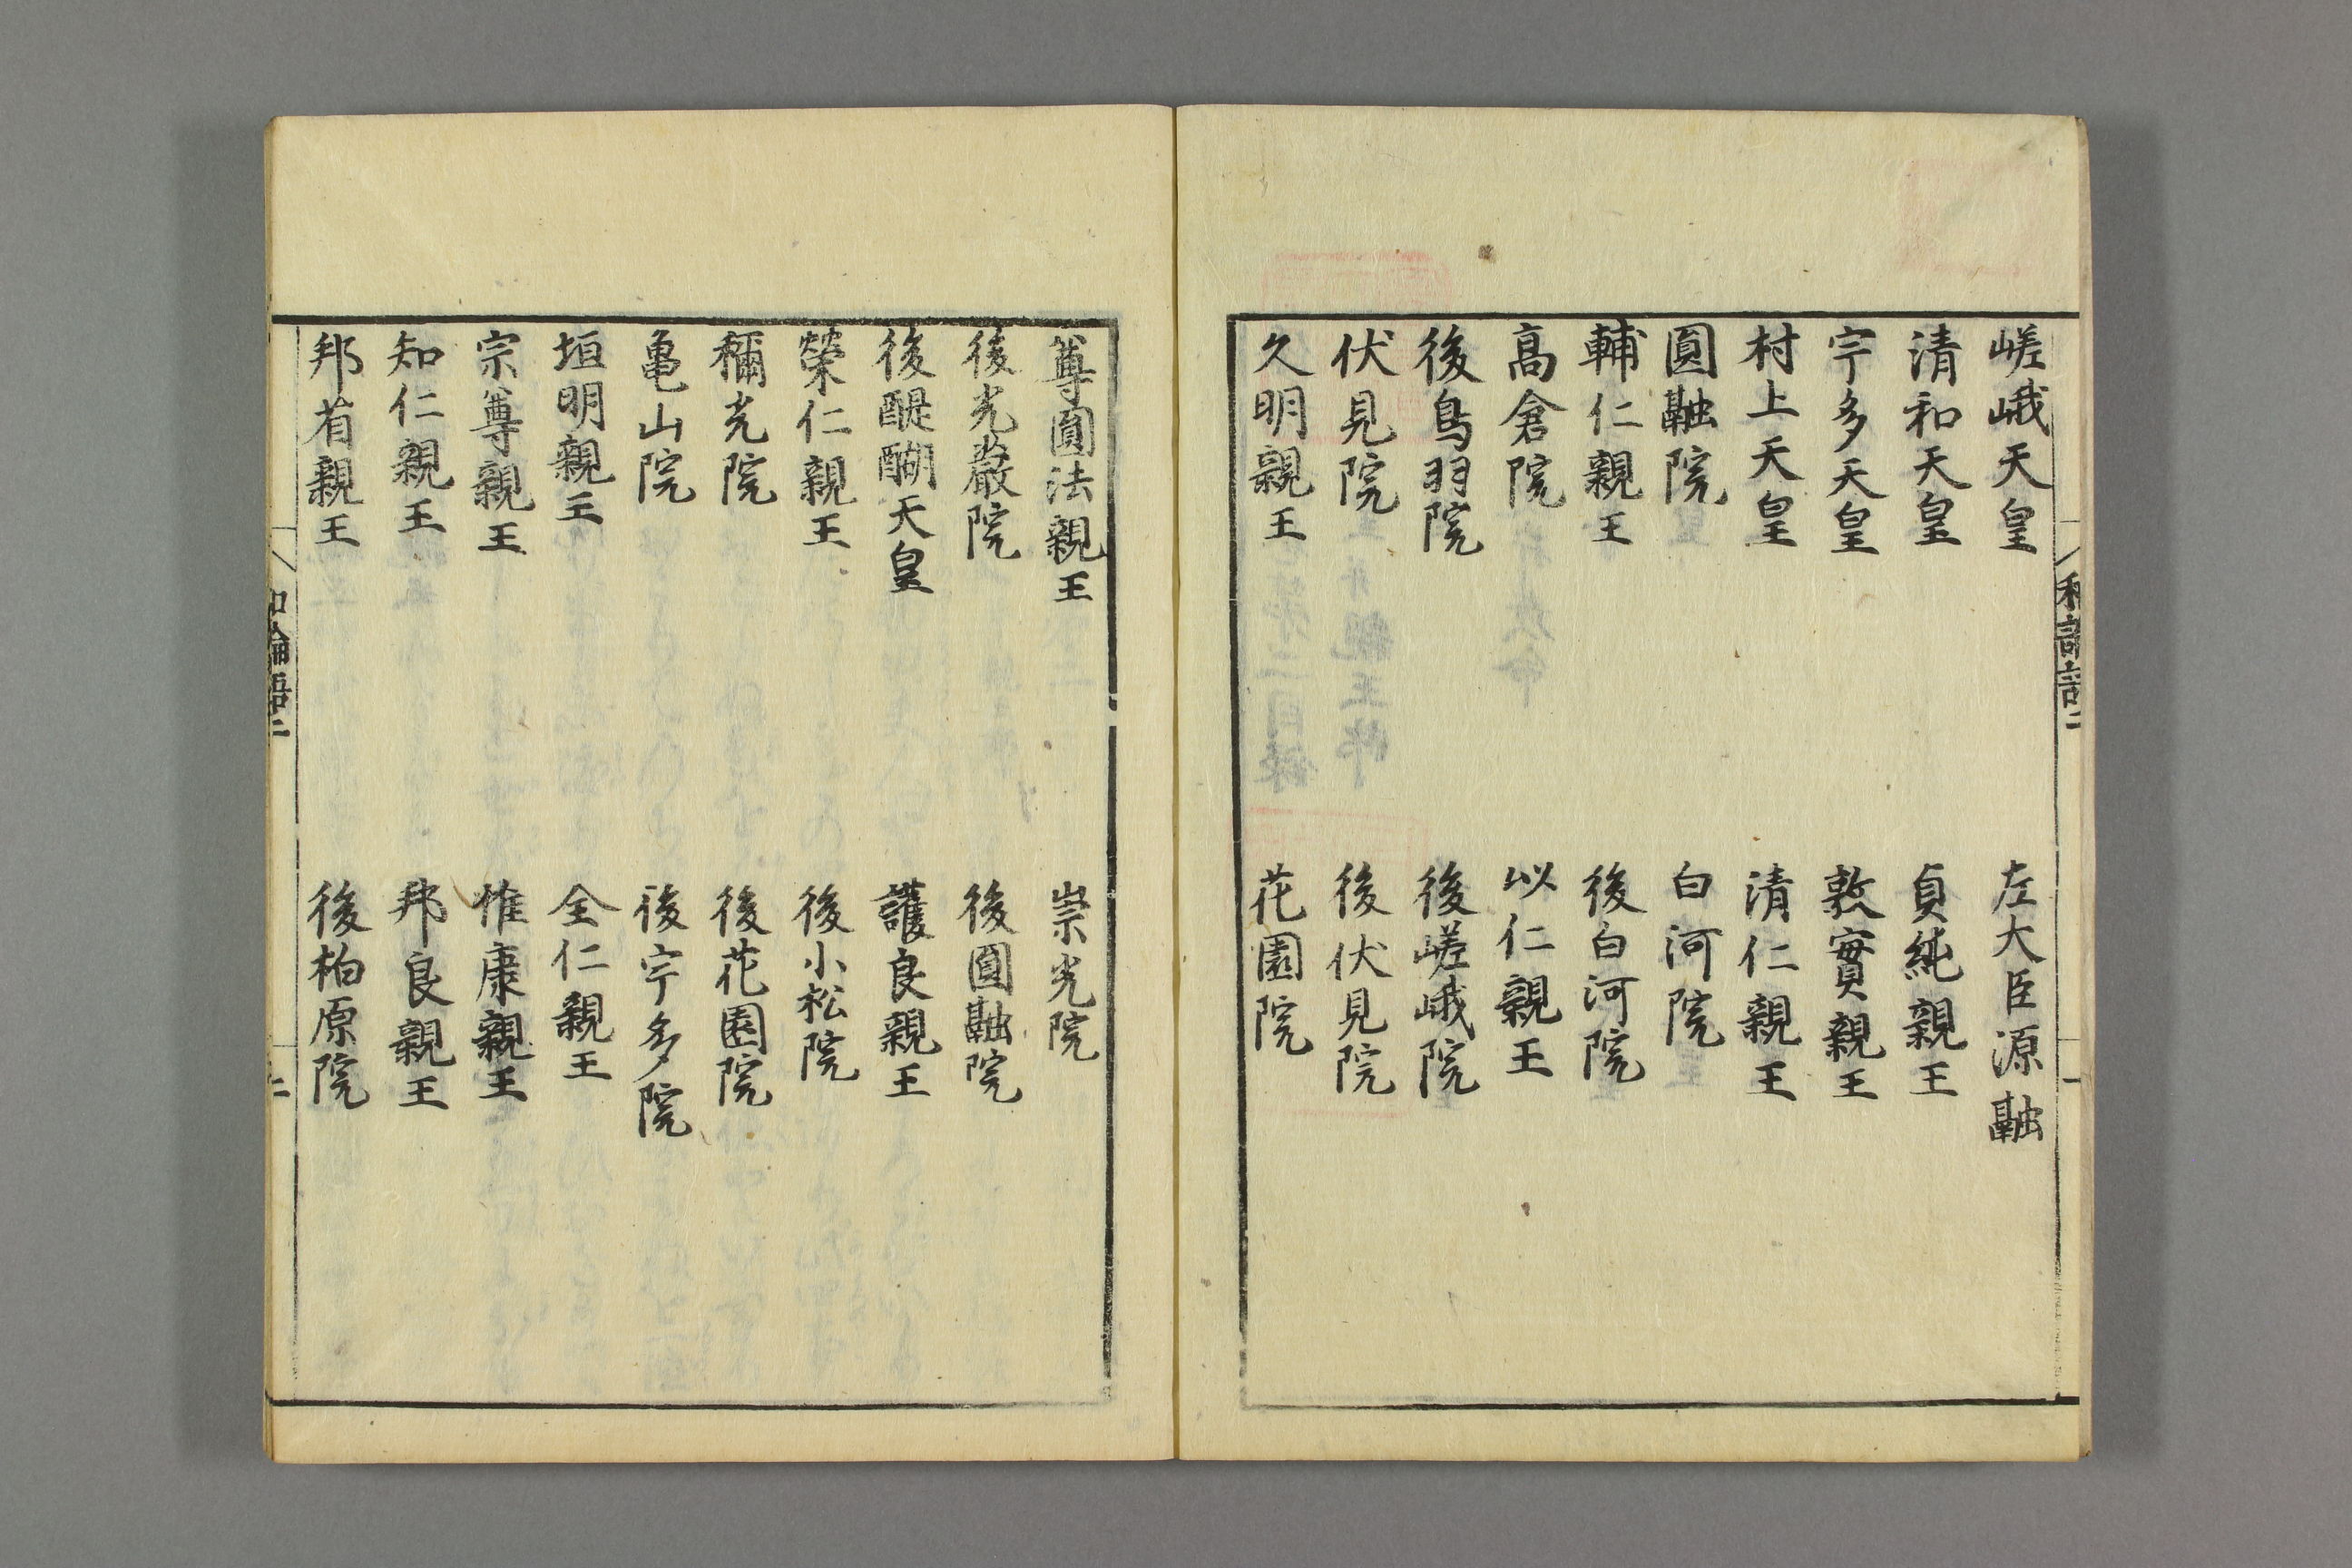 嵯峨天皇　左大臣源融
清和天皇　貞純親王
宇多天皇　敦實親王
村上天皇　清仁親王
圓融院　白河院
輔仁親王　後白河院
高倉院　以仁親王
後鳥羽院　後嵯峨院
伏見院　後伏見院
久明親王　花園院
尊圓法親王　崇光院
後光嚴院　後圓融院
後醍醐天皇　護良親王
榮仁親王　後小松院
稱光院　後花園院
亀山院　後宇多院
垣明親王　全仁親王
宗尊親王　惟康親王
知仁親王　邦良親王
邦省親王　後柏原院
和論語二
二